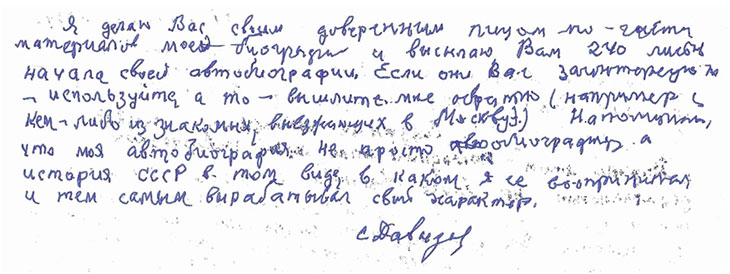 Я делаю Вас своим доверенным лицом по части
материалов моей биографии и высылаю Вам 240 листов
начала своей автобиографии. Если они Вас заинтересуют
– используйте, а то – вышлите мне обратно (например с
кем-либо из знакомых, выезжающих в Москву?) Напоминаю,
что моя автобиография не просто автобиография а
история СССР в том виде, в каком я ее воспринимал
и тем самым вырабатывал свой характер.